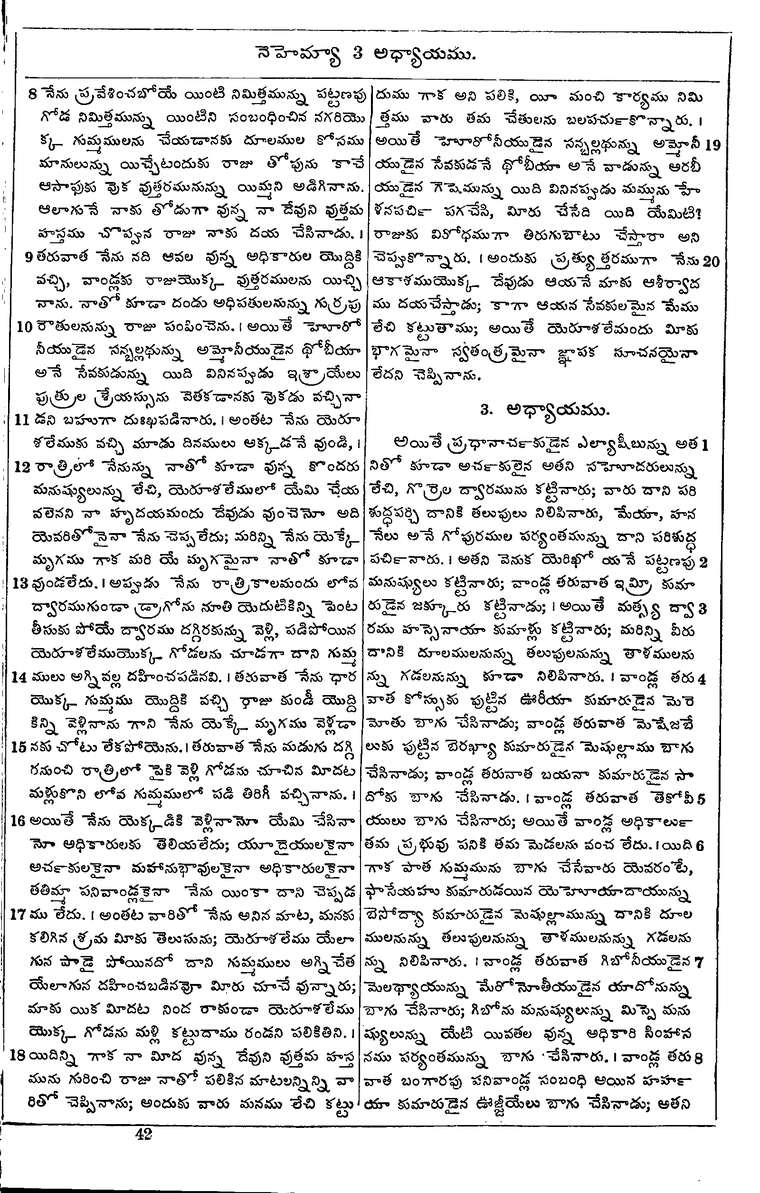 నెహెమ్యా 3 అధ్యాయము.
8 నేను ప్రవేశించబోయే యింటి నిమిత్తమున్ను పట్టణపు
గోడ నిమిత్తమున్ను యింటిని సంబంధించిన నగరియొ
క్క గుమ్మములను చేయడానకు దూలముల కోసము
మానులున్ను యిచ్చేటందుకు రాజు తోపును కాచే
ఆసాఫుకు వొక వుత్తరమునున్ను యిమ్మని అడిగినాను.
ఆలాగునే నాకు తోడుగా వున్న నా దేవుని వుత్తమ
హస్తము చొప్పున రాజు నాకు దయ చేసినాడు. ।
9 తరువాత నేను నది ఆవల వున్న అధికారుల యొద్దికి
వచ్చి, వాండ్లకు రాజుయొక్క వుత్తరములను యిచ్చి
నాను. నాతో కూడా దండు అధిపతులనున్ను గుర్రపు
10 రౌతులనున్ను రాజు పంపించెను. । అయితే హొరో
నీయుడైన సన్బల్లథున్ను అమ్మోనీయుడైన థోబీయా
అనే సేవకుడున్ను యిది వినినప్పుడు ఇశ్రాయేలు
పుత్రుల శ్రేయస్సును వెతకడానకు వొకడు వచ్చినా
11 డని బహుగా దుఃఖపడినారు. । అంతట నేను యెరూ
శలేముకు వచ్చి మూడు దినములు అక్కడనే వుండి, ।
12 రాత్రిలో నేనున్ను నాతో కూడా వున్న కొందరు
మనుష్యులున్ను లేచి, యెరూశలేములో యేమి చేయ
వలెనని నా హృదయమందు దేవుడు వుంచెనొ అది
యెవరితోనైనా నేను చెప్పలేదు; మరిన్ని నేను యెక్కే
మృగము గాక మరి యే మృగమైనా నాతో కూడా
13 వుండలేదు. । అప్పుడు నేను రాత్రికాలమందు లోవ
ద్వారముగుండా డ్రాగోను నూతి యెదుటికిన్ని పెంట
తీసుకు పోయే ద్వారము దగ్గిరకున్ను వెళ్లి, పడిపోయిన
యెరూశలేముయొక్క గోడలను చూడగా దాని గుమ్మ
14 ములు అగ్నివల్ల దహించపడినవి. । తరువాత నేను ధార
యొక్క గుమ్మము యొద్దికి వచ్చి రాజు కుండీ యొద్ది
కిన్ని వెళ్లినాను గాని నేను యెక్కే మృగము వెళ్లడా
15 నకు చోటు లేకపోయెను. । తరువాత నేను మడుగు దగ్గి
రనుంచి రాత్రిలో పైకి వెళ్లి గోడను చూచిన మీదట
మళ్లుకొని లోవ గుమ్మములో పడి తిరిగీ వచ్చినాను. ।
16 అయితే నేను యెక్కడికి వెళ్లినానో యేమి చేసినా
నో అధికారులకు తెలియలేదు; యూదైయులకైనా
అర్చకులకైనా మహానుభావులకైనా అధికారులకైనా
తతిమ్మా పనివాండ్లకైనా నేను యింకా దాని చెప్పడ
17 ము లేదు. । అంతట వారితో నేను అనిన మాట, మనకు
కలిగిన శ్రమ మీకు తెలుసును; యెరూశలేము యేలా
గున పాడై పోయినదో దాని గుమ్మములు అగ్నిచేత
యేలాగున దహించబడినవో మీరు చూచే వున్నారు;
మాకు యిక మీదట నింద రాకుండా యెరూశలేము
యొక్క గోడను మళ్లీ కట్టుదాము రండని పలికితిని. ।
18 యిదిన్ని గాక నా మీద వున్న దేవుని వుత్తమ హస్త
మును గురించి రాజు నాతో పలికిన మాటలన్నిన్ని వా
రితో చెప్పినాను; అందుకు వారు మనము లేచి కట్టు
దుము గాక అని పలికి, యీ మంచి కార్యము నిమి
త్తము వారు తమ చేతులను బలపర్చుకొన్నారు. ।
అయితే హొరోనీయుడైన సన్బల్లథున్ను అమ్మోనీ 19
యుడైన సేవకుడనే థోబీయా అనే వాడున్ను ఆరబీ
యుడైన గెషెమున్ను యిది వినినప్పుడు మమ్మును హే
ళనపర్చి పగచేసి, మీరు చేసేది యిది యేమిటి?
రాజుకు విరోధముగా తిరుగుబాటు చేస్తారా అని
చెప్పుకొన్నారు. । అందుకు ప్రత్యుత్తరముగా నేను 20
ఆకాశముయొక్క దేవుడు ఆయనే మాకు ఆశీర్వాద
ము దయచేస్తాడు; కాగా ఆయన సేవకులమైన మేము
లేచి కట్టుతాము; అయితే యెరూశలేమందు మీకు
భాగమైనా స్వతంత్రమైనా జ్ఞాపక సూచనయైనా
లేదని చెప్పినాను.
3. అధ్యాయము.
అయితే ప్రధానార్చకుడైన ఎల్యాషీబున్ను అత 1
నితో కూడా అర్చకులైన అతని సహోదరులున్ను
లేచి, గొర్రెల ద్వారమును కట్టినారు; వారు దాని పరి
శుద్ధపర్చి దానికి తలుపులు నిలిపినారు, మేయా, హన
నేలు అనే గోపురముల పర్యంతమున్ను దాని పరిశుద్ధ
పర్చినారు. । అతని వెనుక యెరిఖో యనే పట్టణపు 2
మనుష్యులు కట్టినారు; వాండ్ల తరువాత ఇమ్రీ కుమా
రుడైన జక్కూరు కట్టినాడు; । అయితే మత్స్య ద్వా 3
రము హస్సెనాయా కుమార్లు కట్టినారు; మరిన్ని వీరు
దానికి దూలములనున్ను తలుపులనున్ను తాళములను
న్ను గడలనున్ను కూడా నిలిపినారు. । వాండ్ల తరు 4
వాత కోస్సుకు పుట్టిన ఊరీయా కుమారుడైన మెరె
మోతు బాగు చేసినాడు; వాండ్ల తరువాత మెషేజబే
లుకు పుట్టిన బెరఖ్యా కుమారుడైన మెషుల్లాము బాగు
చేసినాడు; వాండ్ల తరువాత బయనా కుమారుడైన సా
దోకు బాగు చేసినాడు. । వాండ్ల తరువాత తెకోవీ 5
యులు బాగు చేసినారు; అయితే వాండ్ల అధికార్లు
తమ ప్రభువు పనికి తమ మెడలను వంచ లేదు. । యిది 6
గాక పాత గుమ్మమును బాగు చేసేవారు యెవరంటే,
ఫాసేయహు కుమారుడయిన యెహొయాదాయున్ను
బెసోద్యా కుమారుడైన మెషుల్లామున్ను దానికి దూల
ములనున్ను తలుపులనున్ను తాళములనున్ను గడలను
న్ను నిలిపినారు. । వాండ్ల తరువాత గిబోనీయుడైన 7
మెలథ్యాయున్ను మేరోనోతీయుడైన యాదోనున్ను
బాగు చేసినారు; గిబోను మనుష్యులున్ను మిస్పె మను
ష్యులున్ను యేటి యివతల వున్న అధికారి సింహాస
నము పర్యంతమున్ను బాగు చేసినారు. । వాండ్ల తరు 8
వాత బంగారపు పనివాండ్ల సంబంధి అయిన హర్హ
యా కుమారుడైన ఊజ్జీయేలు బాగు చేసినాడు; అతని
42